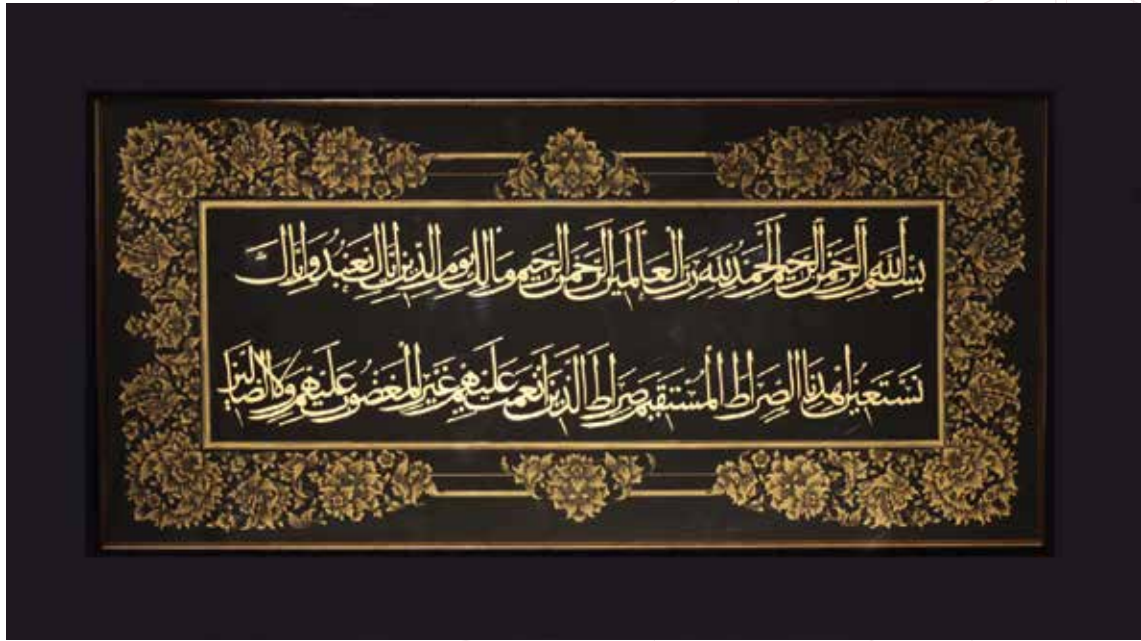 بسم الله الرحمن الرحيم الحمد لله رب العالمين الرحمن الرحيم مالك يوم الدين اياك نعبد واياك
نستعين اهدنا الصراط المستقيم صراط الذين انعمت عليهم غير المغضوب عليهم ولا الضالين